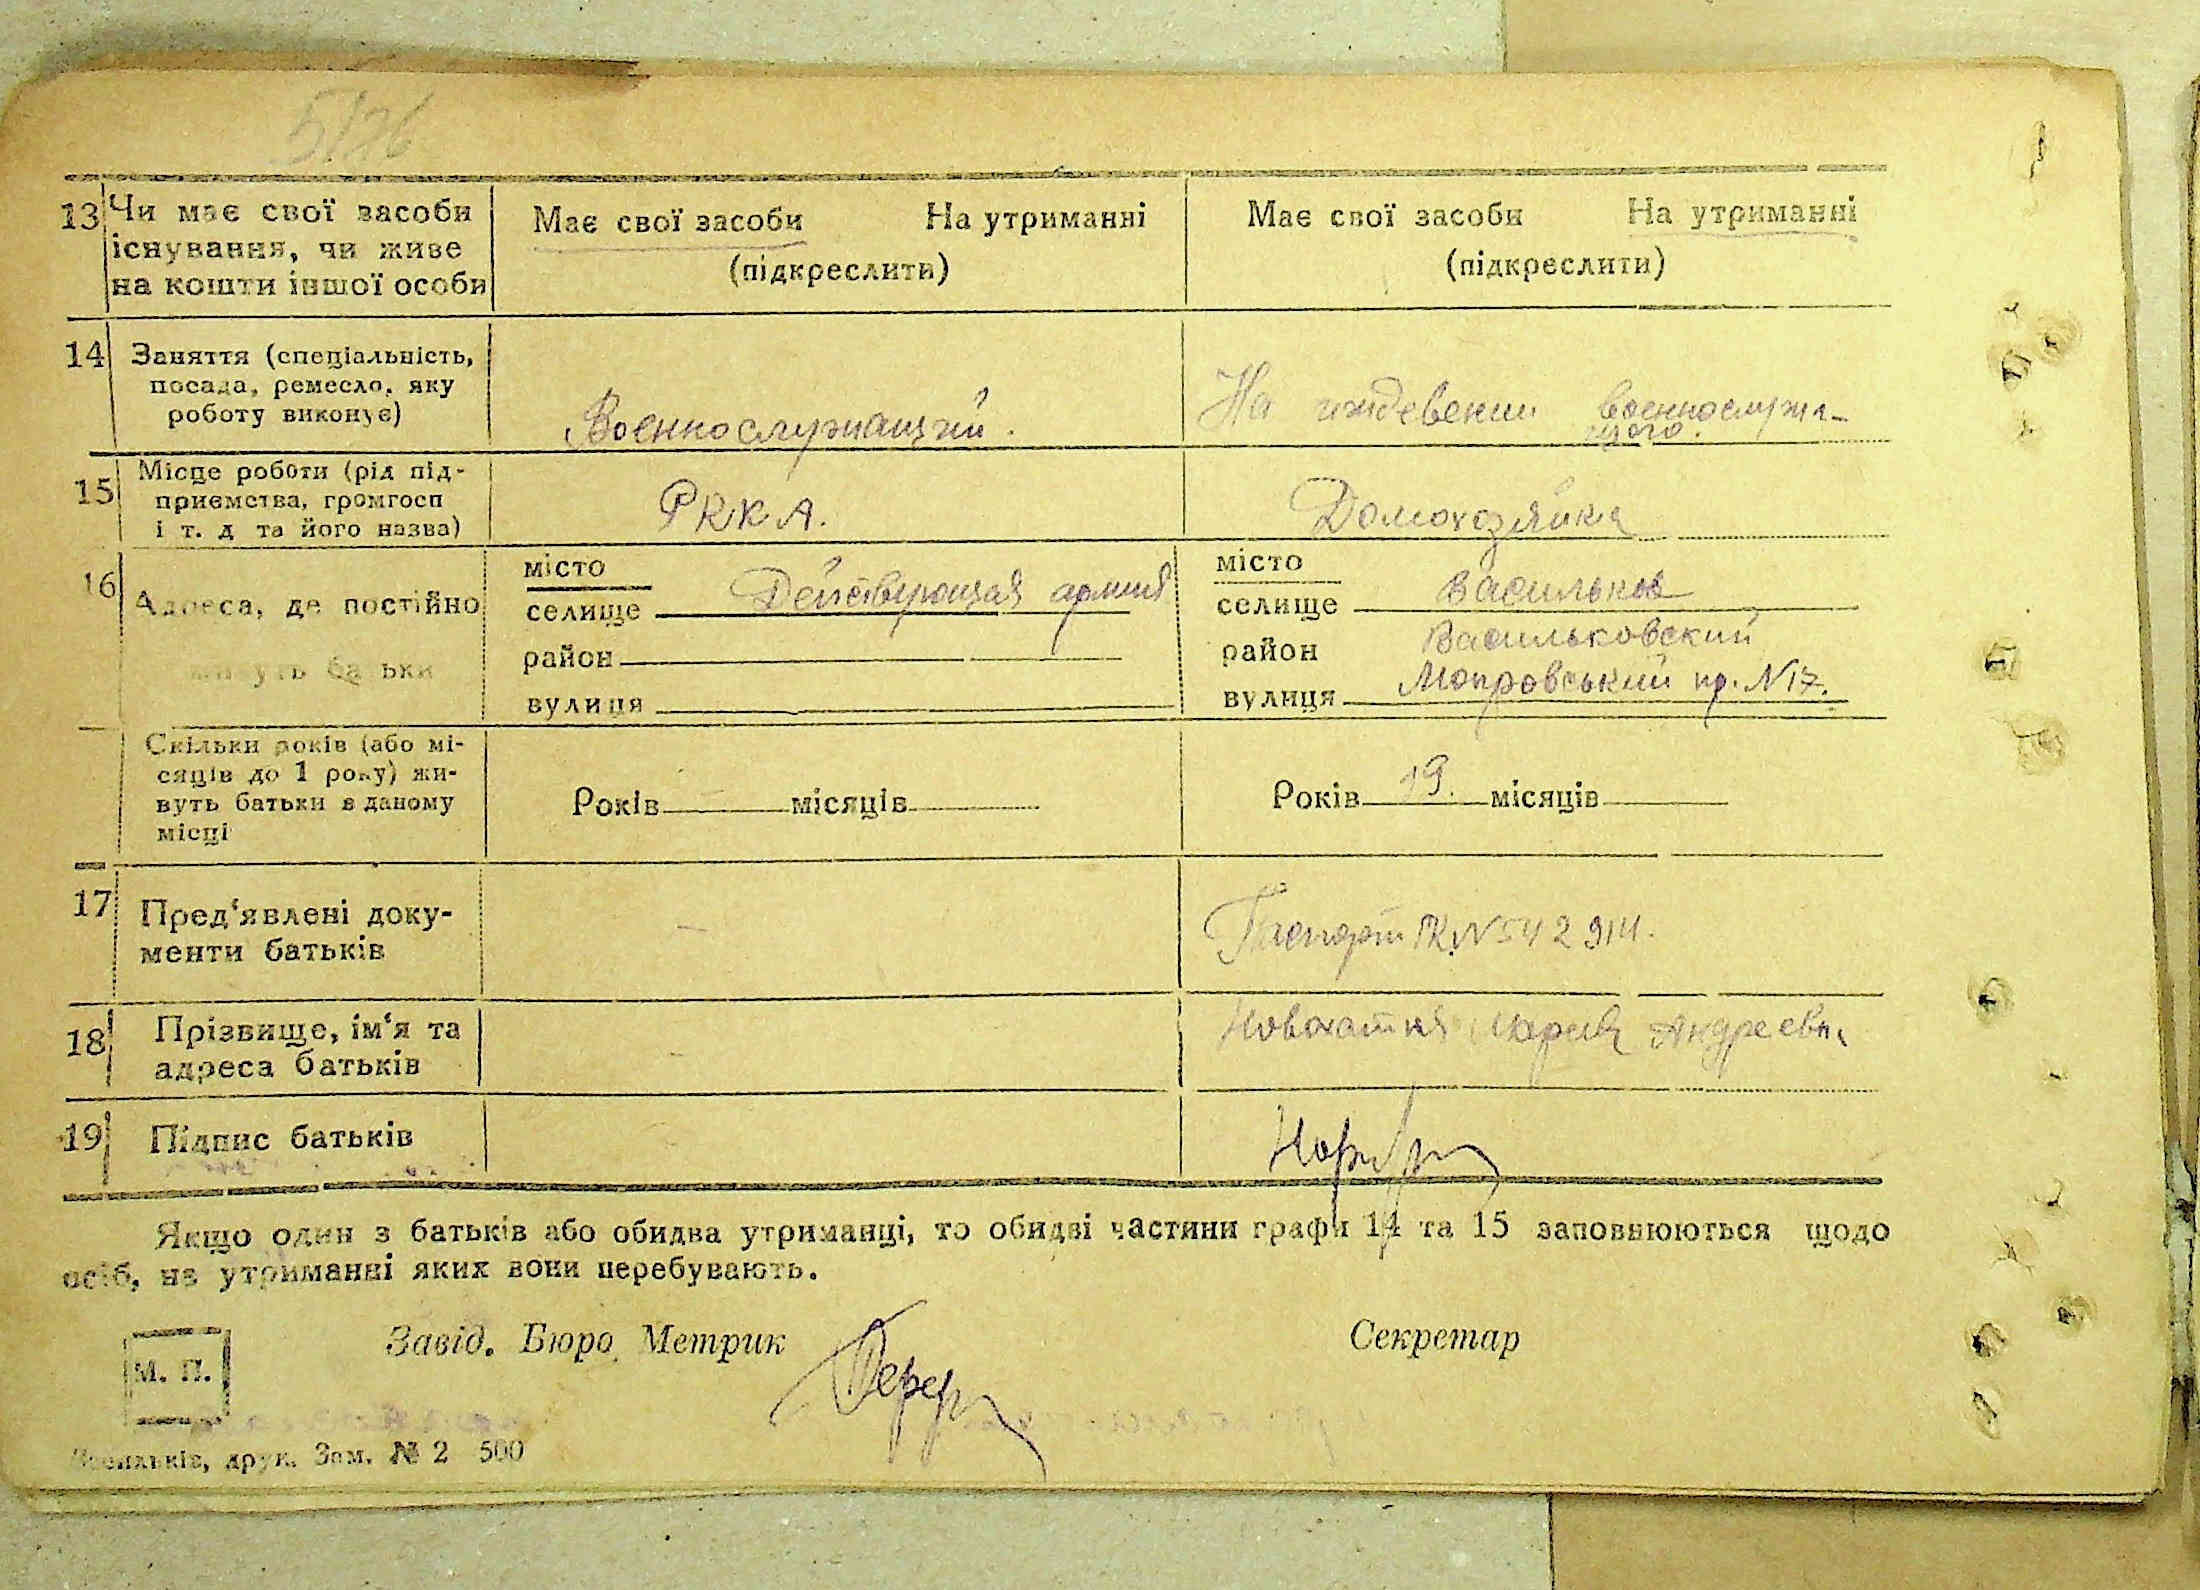 5126
13 Чи має свої засоби існування, чи живе на кошти іншої особи
Має свої засоби На утриманні
(підкреслити)
Має свої засоби На утриманні
(підкреслити)
14 Заняття (спеціальність,
посада, ремесло, яку
роботу виконує)
Военнослужащий.
На иждевении военнослужа-
щого.
15 Місце роботи (рід під-
приємства, громгосп
і т. д та його назва)
РККА.
Домохозяйка
16 Адреса, де постійно
живуть батьки
місто
селище Действующая армия
район
вулиця
місто
селище Васильков
район Васильковский
вулиця Мопровський пр. N17.
Скільки років (або мі-
сяців до 1 року) жи-
вуть батьки в даному
місці
Років місяців
Років 19. місяців
17 Пред‘явлені доку-
менти батьків
Паспорт N 542914.
18 Прізвище, ім‘я та
адреса батьків
Новохатняя Мария Андреевна
19 Підпис батьків
Якщо один з батьків або обидва утриманці, то обидві частини графи 14 та 15 заповнюються щодо
осіб, на утриманні яких вони перебувають.
Завід. Бюро Метрик
Секретар
М. П.
Васильків, друк. Зам. № 2 500